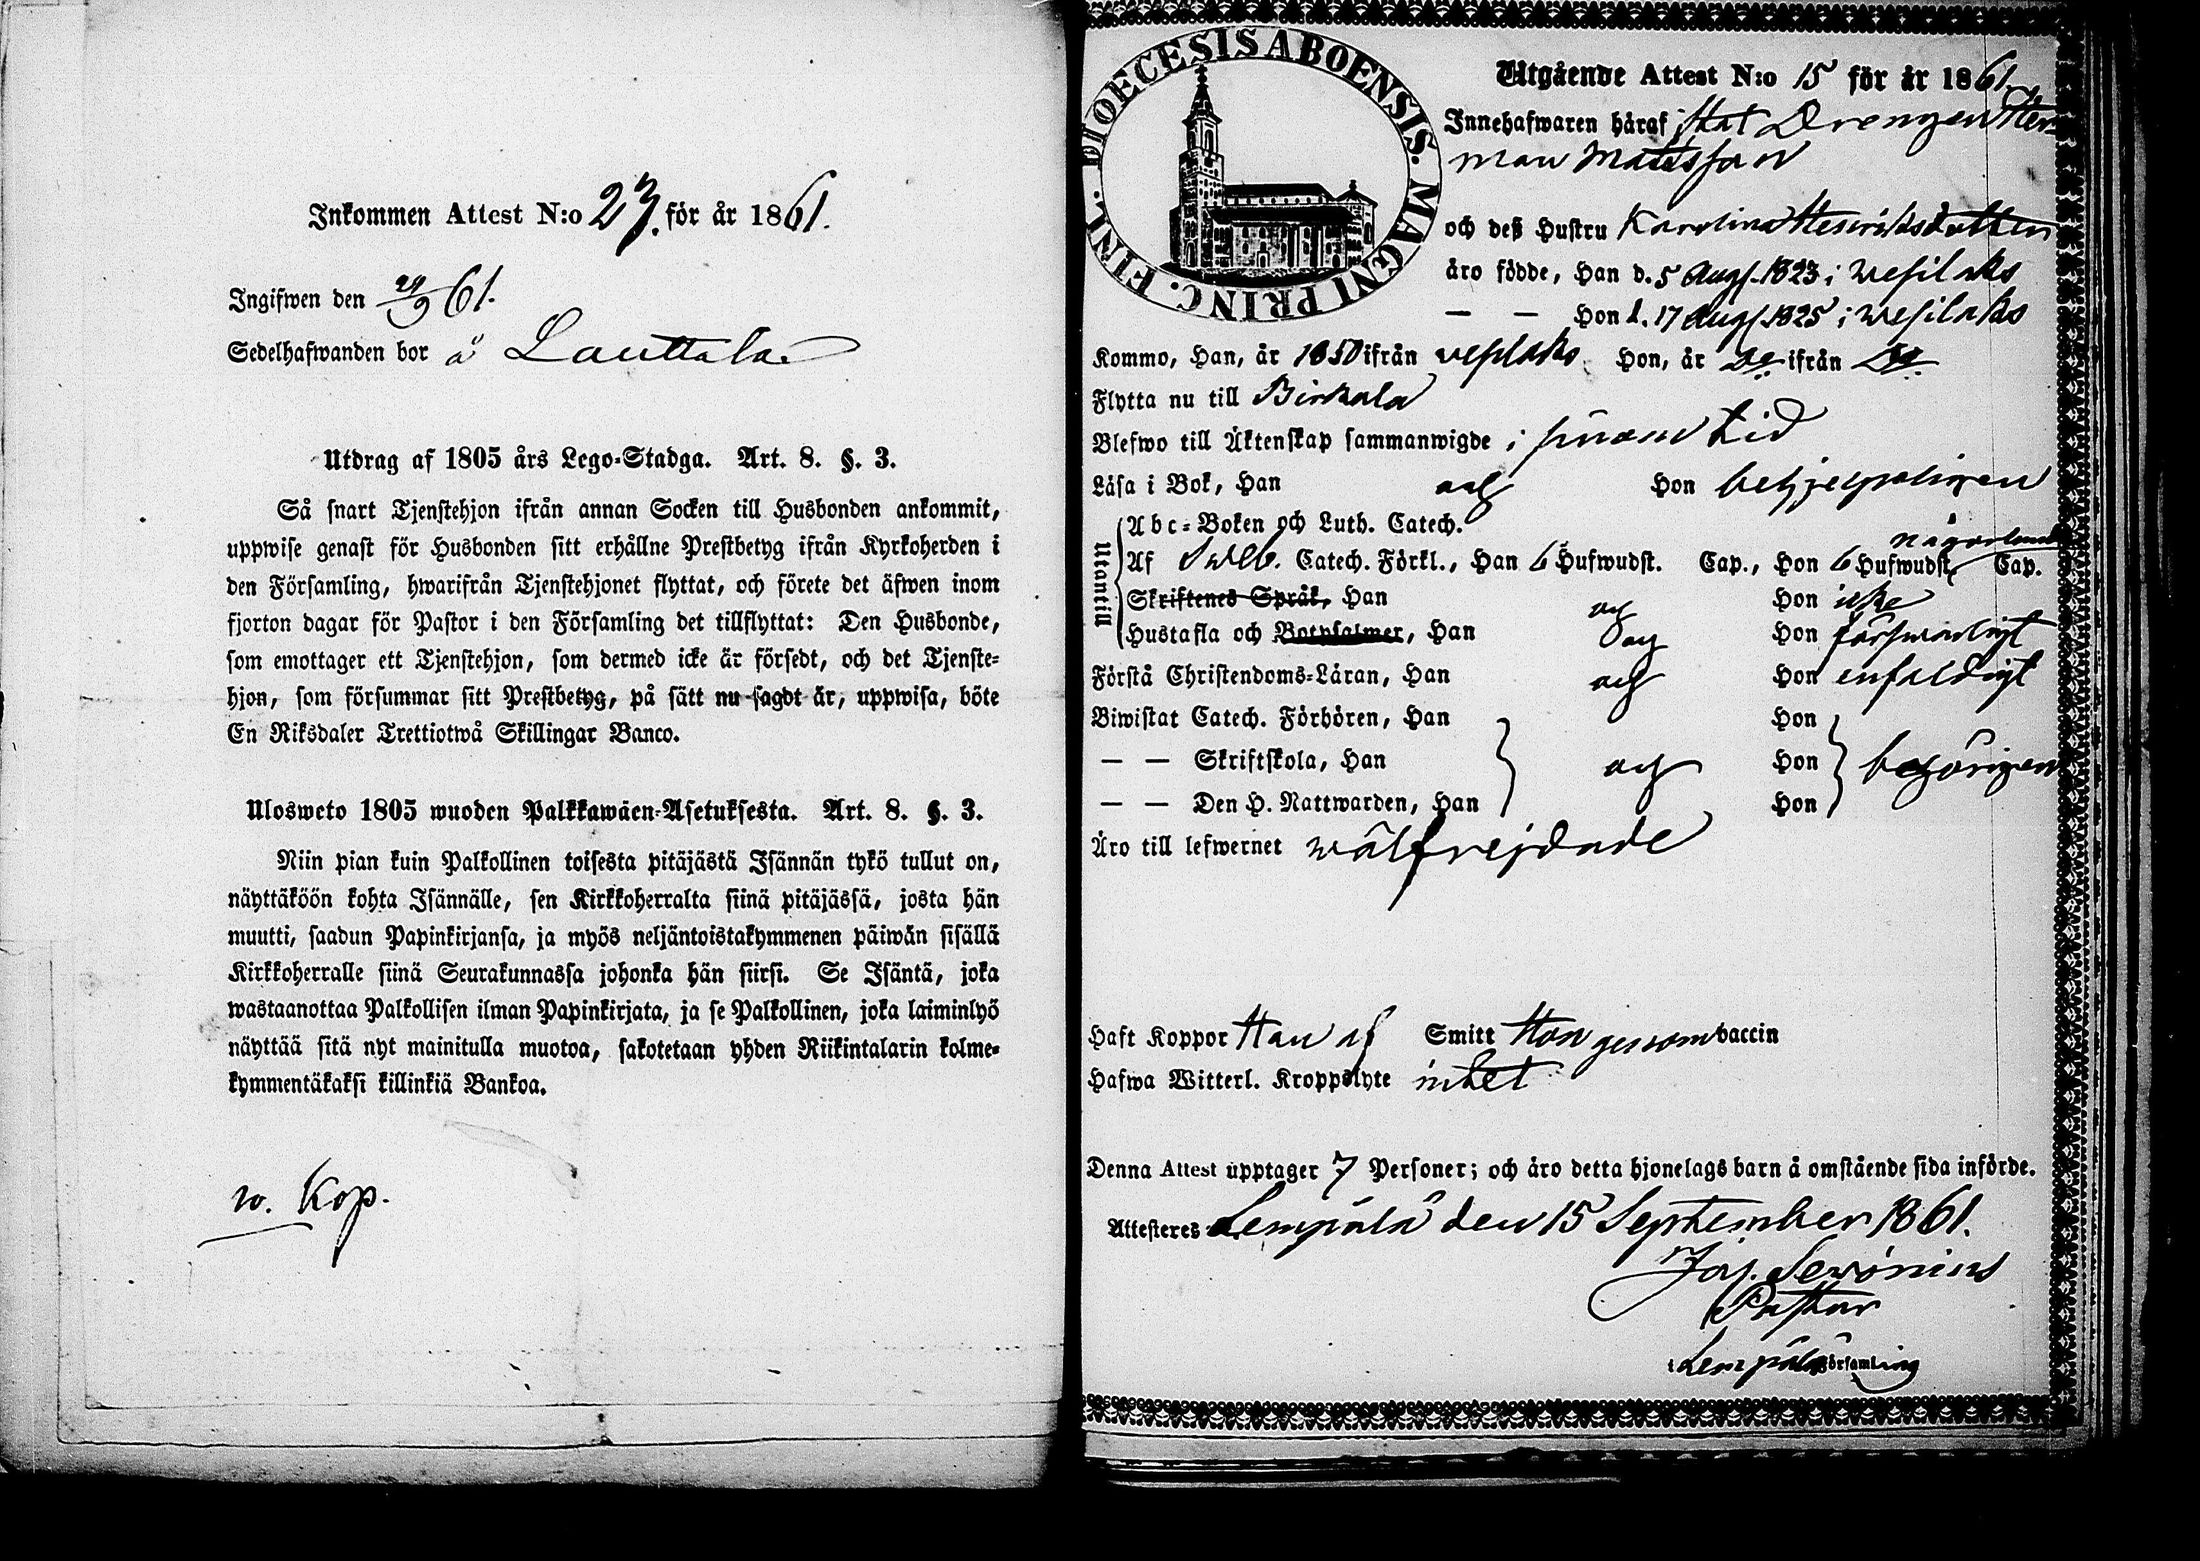 Inkommen Attest N:o 27. för år 1861.
Ingifwen den 29/9 61.
Sedelhafwanden bor å Lauttala
Utdrag af 1805 års Lego-Stadga. Art. 8. §. 3.
Så snart Tjenstehjon ifrån annan Socken till Husbonden ankommit,
uppwise genast för Husbonden sitt erhållne Prestbetyg ifrån Kyrkoherden i
den Församling, hwarifrån Tjenstehjonet flyttat, och förete det äfwen inom
fjorton dagar för Pastor i den Församling det tillflyttat: Den Husbonde,
som emottager ett Tjenstehjon, som dermed icke är försedt, och det Tjenste-
hjon, som försummar sitt Prestbetyg, på sätt nu sagdt är, uppwisa, böte
En Riksdaler Trettiotwå Skillingar Banco.
Ulosweto 1805 wuoden Palkkawäen-Asetuksesta. Art. 8. §. 3.
Niin pian kuin Palkollinen toisesta pitäjästä Isännän tykö tullut on,
näyttäköön kohta Isännälle, sen Kirkkoherralta siinä pitäjässä, josta hän
muutti, saadun Papinkirjansa, ja myös neljäntoistakymmenen päiwän sisällä
Kirkkoherralle siinä Seurakunnassa johonka hän siirsi. Se Isäntä, joka
wastaanottaa Palkollisen ilman Papinkirjata, ja se Palkollinen, joka laiminlyö
näyttää sitä nyt mainitulla muotoa, sakotetaan yhden Riikintalarin kolme-
kymmentäkaksi killinkiä Bankoa.
w. Kop.
DIOECESIS ABOENSIS. MAGNI PRINC. FINL.
Utgående Attest N:o 15 för år 1861.
Innehafwaren häraf Stat Drengen Her-
man Matsson
och deß Hustru Karolina Henriksdotter
äro födde, Han d. 5 Aug. 1823 i Wesilaks
— — Hon d. 17 Aug. 1825 i Wesilaks
Kommo, Han, år 1850 ifrån Wesilaks Hon, år Do ifrån Do
Flytta nu till Birkala
Blefwo till Äktenskap sammanwigde i
 tid
Läsa i Bok, Han
 Hon behjelpeligen
Utantill
Abc-Boken och Luth. Catech.
någorlunda
Af Sweb. Catech. Förkl., Han 6 Hufwudst. Cap., Hon 6 Hufwudst. Cap.
Skriftenes Språk, Han Hon icke
Hustafla och Botpsalmer, Han Hon förswarligt
Förstå Christendoms-Läran, Han Hon enfaldigt
Biwistat Catech. Förhören, Han Hon
— — Skriftskola, Han Hon behörigen
— — Den H. Nattwarden, Han Hon
Äro till lefwernet wälfrejdade
Haft Koppor Han af Smitt Hon genom vaccin
Hafwa Witterl. Kroppslyte intet
Denna Attest upptager 7 Personer; och äro detta hjonelags barn å omstående sida införde.
Attesteres Lempälä den 15 September 1861.
Jos. Serónius
Pastor
i Lempälä Församling